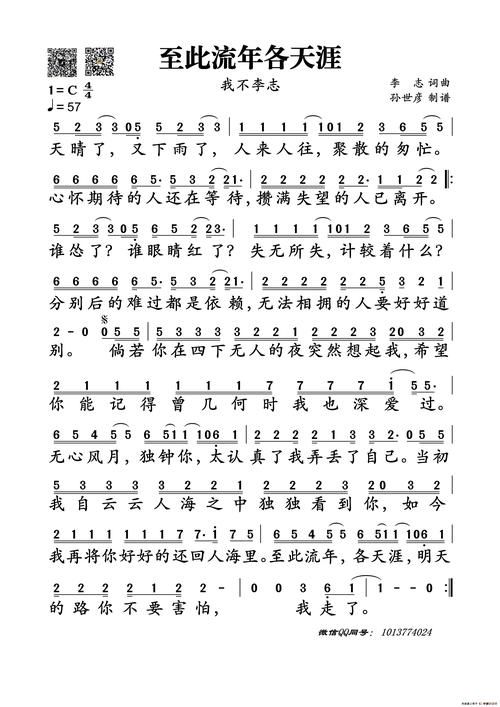 至此流年各天涯
我不李志
李 志 词曲
孙世彦 制谱
1=C 4/4
♩=57
5 2 3 3 0 5 5 2 3 3 1 1 1 1 1 0 1 2 3 6 5 5
天晴了，又下雨了，人来人往，聚散的匆忙。
6 6 6 6 6 6 5· 5 3 2 2 1· 2 2 2 2 2 2 1 1 2 2
心怀期待的人还在等待，攒满失望的人已离开。
5 2 3 3 0 5 5 2 3 3 1 1 1 1 1 0 1 2 3 6 5 5
谁怂了？谁眼睛红了？失无所失，计较着什么？
6 6 6 6 6 6 5· 5 3 2 2 1· 2 2 2 2 2 2 5 3 2 1
分别后的难过都是依赖，无法相拥的人要好好道
2 - 0 0 5 5 5 3 3 3 3 2 2 1 2 2 2 3 2 2 0 3 2
别。 倘若你在四下无人的夜突然想起我，希望
2 1 1 1 1 1 7 7 7 7 i 5 5·
你能记得曾几何时我也深爱过。
6 5 4 5 5 6 5 1 1 1 0 6 1 2 2 2 2 1 3 3 2 0 2·
无心风月，独钟你，太认真了我弄丢了自己。当初
5 3 3 3 3 2 2 1 2 2 2 3 2 2 0 3 2
我自云云人海之中独独看到你，如今
2 1 1 1 1 1 7 7· i 7 5 6 5 4 5 5 6 5 1 1 1 0 6 1
我再将你好好的还回人海里。至此流年，各天涯，明天
2 2 2 2 1 2 2 - 0 0 0 3 6 1 1 - - 0
的路你不要害怕， 我走了。
微信QQ同号： 1013774024